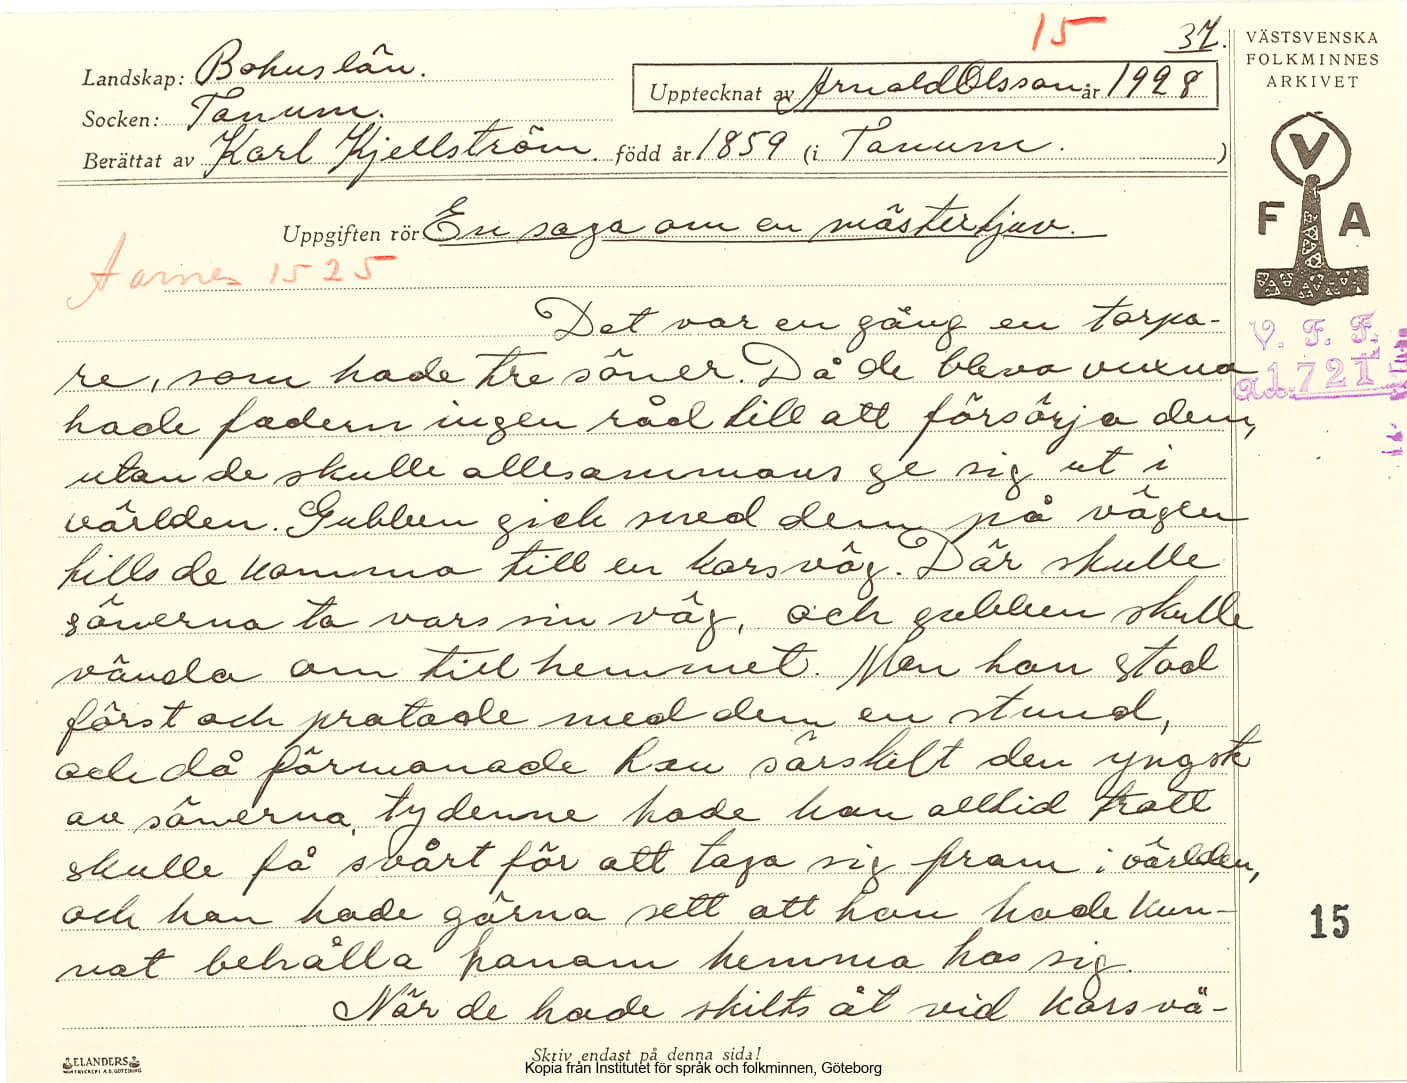 15 37.
VÄSTSVENSKA
FOLKMINNES
ARKIVET
Landskap: Bohuslän.
Upptecknat av Arnold Olsson år 1928
Socken: Tanum.
Berättat av Karl Kjellström. född år 1859 (i Tanum. )
V
F A
Uppgiften rör En saga om en mästertjuv.
Aarnes 1525
Det var en gång en torpa-
re, som hade tre söner. Då de bleva vuxna
hade fadern ingen råd till att försörja dem,
utan de skulle allesammans ge sig ut i
världen. Gubben gick med dem på vägen
tills de kommo till en korsväg. Där skulle
sönerna ta vars sin väg, och gubben skulle
vända om till hemmet. Men han stod
först och pratade med dem en stund,
och då förmanade han särskilt den yngste
av sönerna, ty denne hade han alltid trott
skulle få svårt för att taga sig fram i världen,
och han hade gärna sett att han hade kun-
nat behålla honom hemma hos sig.
När de hade skilts åt vid korsvä-
V. F. F.
a1.721
15
ELANDERS
Skriv endast på denna sida!
Kopia från Institutet för språk och folkminnen, Göteborg